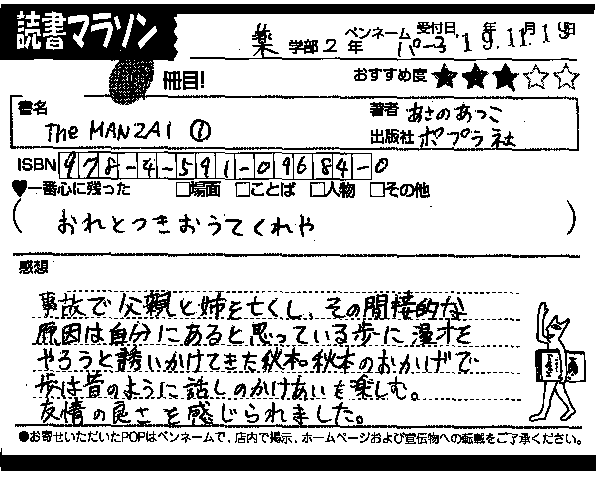 読書マラソン
薬 学部 2 年 ペンネーム パーコ 受付日 19年 11月 19日
冊目!
おすすめ度 ★★★☆☆
書名 The MANZAI ①
著者 あさのあつこ
出版社 ポプラ社
ISBN 978-4-591-09684-0
♥一番心に残った □場面 □ことば □人物 □その他
( おれとつきおうてくれや )
感想
事故で父親と姉を亡くし、その間接的な
原因は自分にあると思っている歩に漫才を
やろうと誘いかけてきた秋本。秋本のおかげで
歩は昔のように話しのかけあいを楽しむ。
友情の良さを感じられました。
●お寄せいただいたPOPはペンネームで、店内で掲示、ホームページおよび宣伝物への転載をご了承ください。